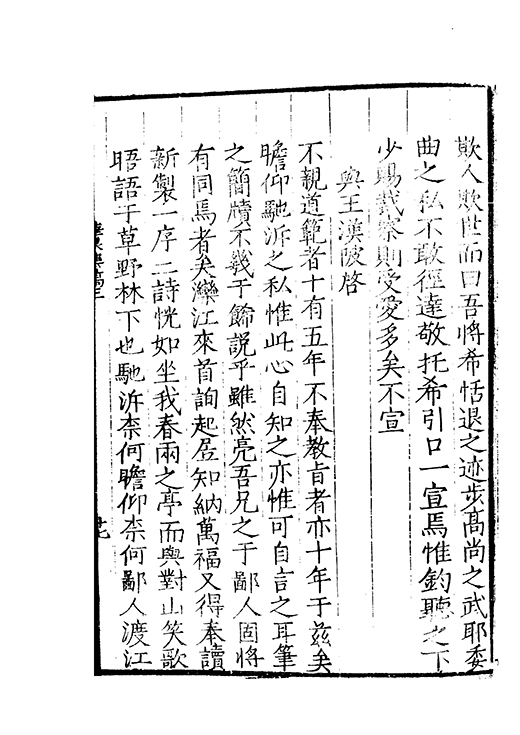 欺人欺世而曰吾將希恬退之迹步高尚之武耶委
曲之私不敢徑達敬托希引口一宣焉惟鈞聽之下
少賜裁察則受愛多矣不宣
與王漢陂啓
不親道範者十有五年不奉教旨者亦十年于兹矣
瞻仰馳泝之私惟此心自知之亦惟可自言之耳筆
之簡牘不幾于飾説乎雖然亮吾兄之于鄙人固將
有同焉者矣灤江來首詢起居知納萬福又得奉讀
新製一序二詩恍如坐我春雨之亭而與對山笑歌
晤語于草野林下也馳泝柰何瞻仰柰何鄙人渡江
集稿三
廿七